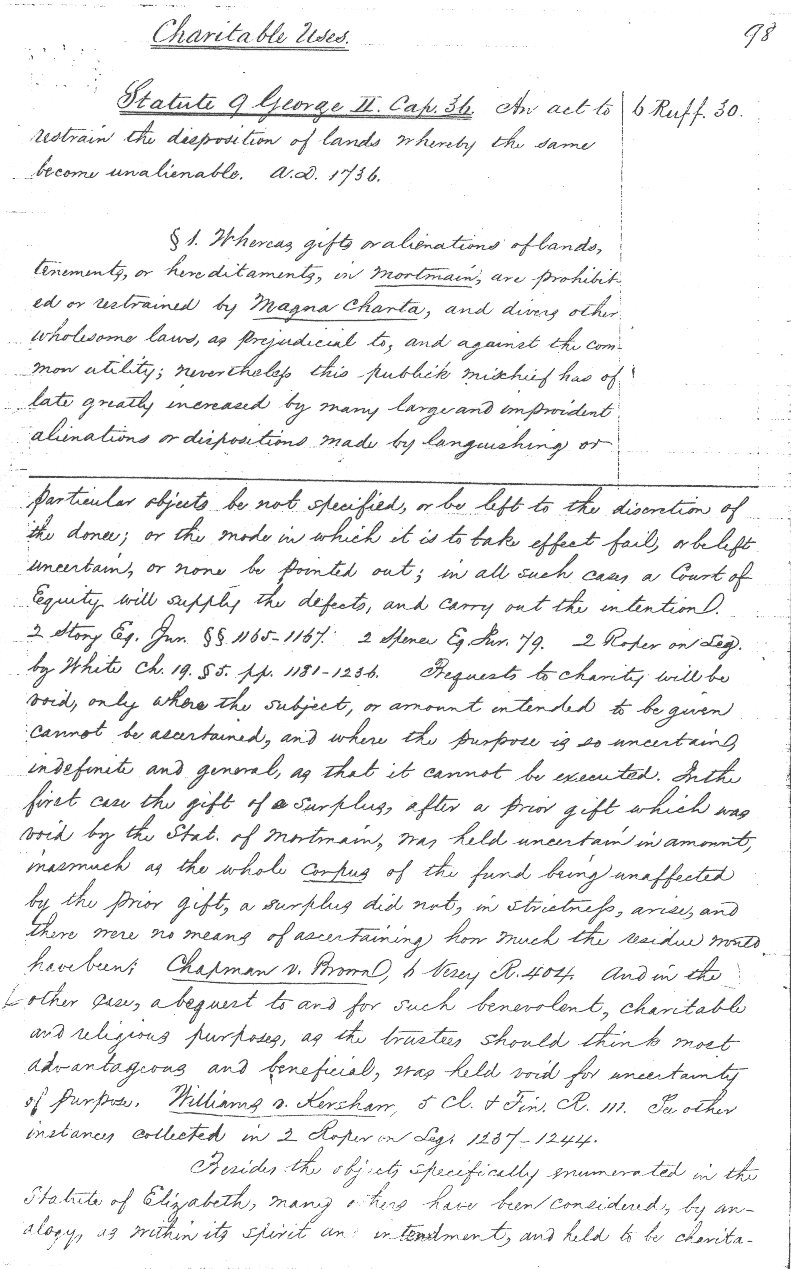 Charitable Uses.
98
Statute 9 George II. Cap. 36. An act to
6 Ruff. 30.
restrain the disposition of lands whereby the same
become unalienable. A.D. 1736.
§ 1. Whereas gifts or alienations of lands,
tenements, or hereditaments, in mortmain, are prohibit-
ed or restrained by Magna Charta, and divers other
wholesome laws, as prejudicial to, and against the com-
mon utility; nevertheless this publick mischief has of
late greatly increased by many large and improvident
alienations or dispositions made by languishing or
particular objects be not specified, or be left to the discretion of
the donee; or the mode in which it is to take effect fail, or be left
uncertain, or none be pointed out; in all such cases a Court of
Equity will supply the defects, and carry out the intention.
2 Story Eq. Jur. §§ 1165-1167. 2 Spence Eq. Jur. 79. 2 Roper on Leg.
by White Ch. 19. § 5. pp. 1181-1236. Bequests to charity will be
void, only where the subject, or amount intended to be given
cannot be ascertained, and where the purpose is so uncertain,
indefinite and general, as that it cannot be executed. In the
first case the gift of a surplus, after a prior gift which was
void by the Stat. of Mortmain, was held uncertain in amount,
inasmuch as the whole corpus of the fund being unaffected
by the prior gift, a surplus did not, in strictness, arise, and
there were no means of ascertaining how much the residue would
have been; Chapman v. Brown, 6 Vesey R. 404. And in the
other case, a bequest to and for such benevolent, charitable
and religious purposes, as the trustees should think most
advantageous and beneficial, was held void for uncertainty
of purpose. Williams v. Kershaw, 5 Cl. & Fin. R. 111. See other
instances collected in 2 Roper on Leg. 1237-1244.
Besides the objects specifically enumerated in the
Statute of Elizabeth, many others have been considered, by an-
alogy, as within its spirit an intendment, and held to be charita-